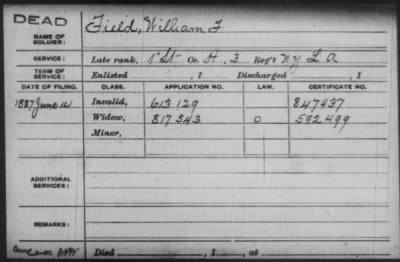 DEAD
NAME OF SOLDIER: Field, William F
SERVICE: Late rank, 1" Lt Co. H, 3 Reg't N Y L A
TERM OF SERVICE: Enlisted , 1 Discharged , 1
DATE OF FILING. CLASS. APPLICATION NO. LAW. CERTIFICATE NO.
1887 June 14 Invalid, 613 129 847437
Widow, 817 543 O 592499
Minor,
ADDITIONAL SERVICES:
REMARKS:
Died , 1 , at